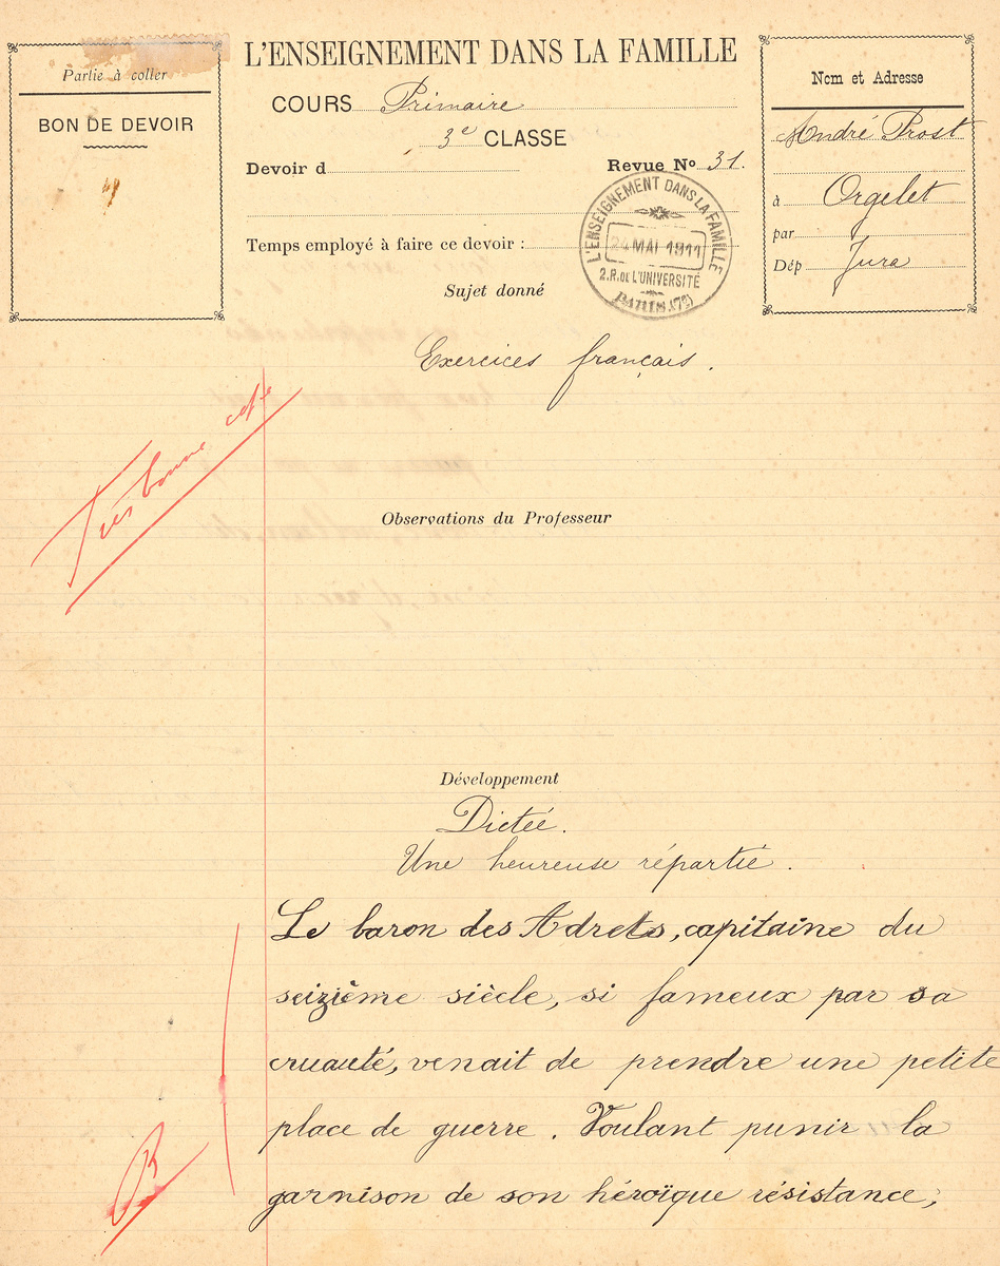 Partie à coller
BON DE DEVOIR
L'ENSEIGNEMENT DANS LA FAMILLE
COURS Primaire
3e CLASSE
Devoir d
Revue No 31.
Temps employé à faire ce devoir :
L'ENSEIGNEMENT DANS LA FAMILLE
24 MAI 1911
2.R.DE L'UNIVERSITÉ
PARIS (7e)
Nom et Adresse
André Prost
à Orgelet
par
Dép Jura
Sujet donné
Exercices français.
Très bonne copie
Observations du Professeur
Développement
Dictée.
Une heureuse répartie.
Le baron des Adrets, capitaine du
seizième siècle, si fameux par sa
cruauté, venait de prendre une petite
place de guerre. Voulant punir la
B
garnison de son héroïque résistance,